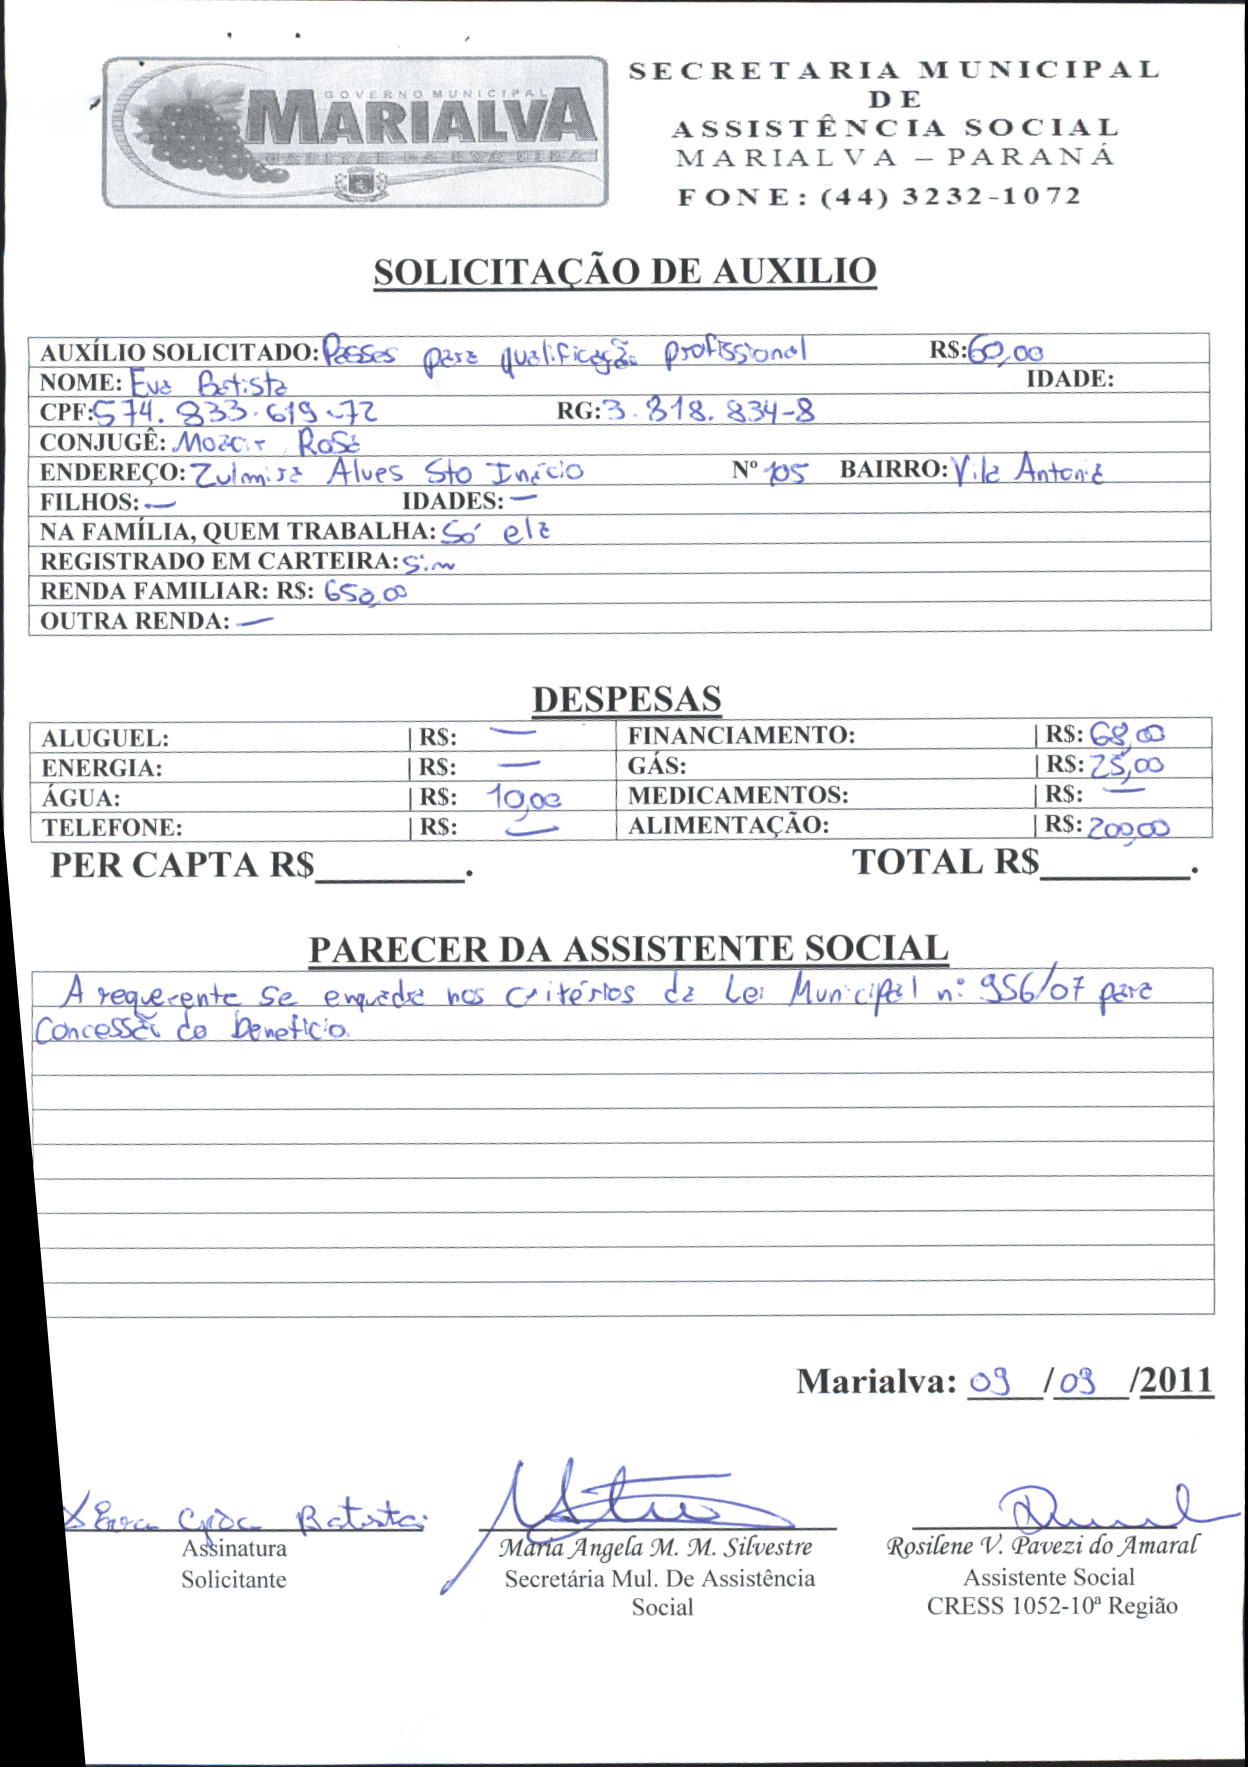 GOVERNO MUNICIPAL
MARIALVA
CAPITAL DA UVA FINA
SECRETARIA MUNICIPAL
DE
ASSISTÊNCIA SOCIAL
MARIALVA – PARANÁ
FONE: (44) 3232-1072
SOLICITAÇÃO DE AUXILIO
AUXÍLIO SOLICITADO: Passes para qualificação profissional R$: 60,00
NOME: Eva Batista IDADE:
CPF: 574.833.619-72 RG: 3.818.834-8
CONJUGÊ: Moacir Rosa
ENDEREÇO: Zulmira Alves Sto Inácio Nº 105 BAIRRO: Vila Antonia
FILHOS: — IDADES: —
NA FAMÍLIA, QUEM TRABALHA: Só ela
REGISTRADO EM CARTEIRA: Sim
RENDA FAMILIAR: R$: 650,00
OUTRA RENDA: —
DESPESAS
ALUGUEL: | R$: — FINANCIAMENTO: | R$: 68,00
ENERGIA: | R$: — GÁS: | R$: 25,00
ÁGUA: | R$: 10,00 MEDICAMENTOS: | R$: —
TELEFONE: | R$: — ALIMENTAÇÃO: | R$: 200,00
PER CAPTA R$________. TOTAL R$________.
PARECER DA ASSISTENTE SOCIAL
A requerente se enquadra nos critérios da Lei Municipal nº 956/07 para
Concessão do benefício.
Marialva: 09/09/2011
Batista
Assinatura Maria Angela M. M. Silvestre Rosilene V. Pavezi do Amaral
Solicitante Secretária Mul. De Assistência Assistente Social
Social CRESS 1052-10ª Região